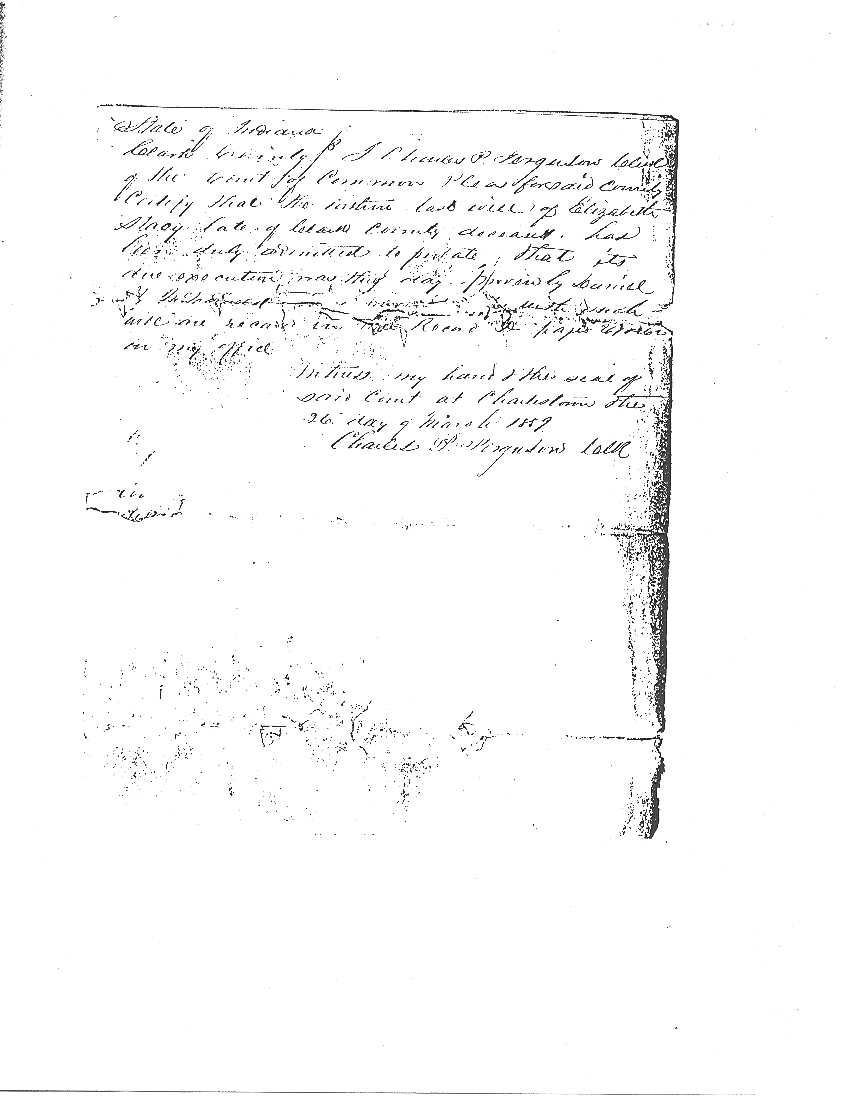 State of Indiana
Clark County I Charles P. Ferguson Clerk
of the Court of Common Pleas for said County
Certify that the within last will of Elizabeth
Stacy late of Clark County deceased. has
been duly admitted to probate, that its
due execution was this day proven by Daniel
with such
will are record in Will Record page
in my office
Witness my hand & the seal of
said Court at Charlestown the
26 day of March 1859
Charles P. Ferguson Clk